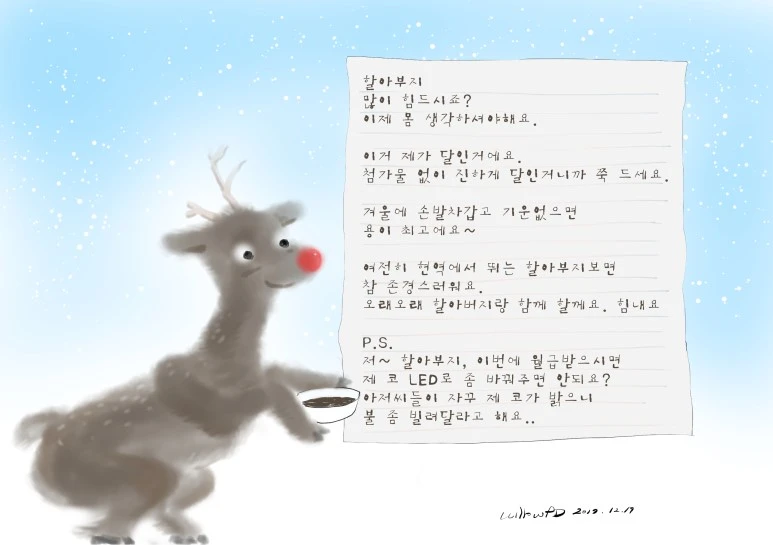 할아부지
많이 힘드시죠?
이제 몸 생각하셔야해요.
이거 제가 달인거에요.
첨가물 없이 진하게 달인거니까 쭉 드세요.
겨울에 손발차갑고 기운없으면
용이 최고에요~
여전히 현역에서 뛰는 할아부지보면
참 존경스러워요.
오래오래 할아버지랑 함께 할께요. 힘내요
P.S.
저~ 할아부지, 이번에 월급받으시면
제 코 LED로 좀 바꿔주면 안되요?
아저씨들이 자꾸 제 코가 밝으니
불 좀 빌려달라고 해요..
willowPD 2019.12.17